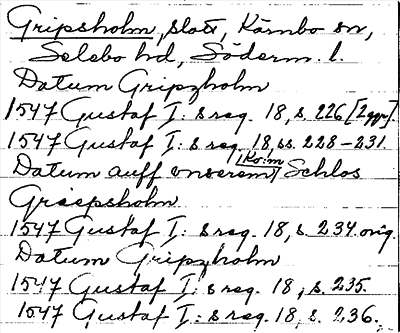 Gripsholm, slott, Kärnbo sn,
Selebo hd, Söderm. l.
Datum Gripzholm
1547 Gustaf I: s reg. 18, s. 226 [2 ggr].
1547 Gustaf I: s reg. 18, ss. 228-231.
Datum auff vnserem Schlos
Griepsholm
1547 Gustaf I: s reg. 18, s. 234. orig.
Datum Gripzholm
1547 Gustaf I: s reg. 18, s. 235.
1547 Gustaf I: s reg. 18, s. 236.